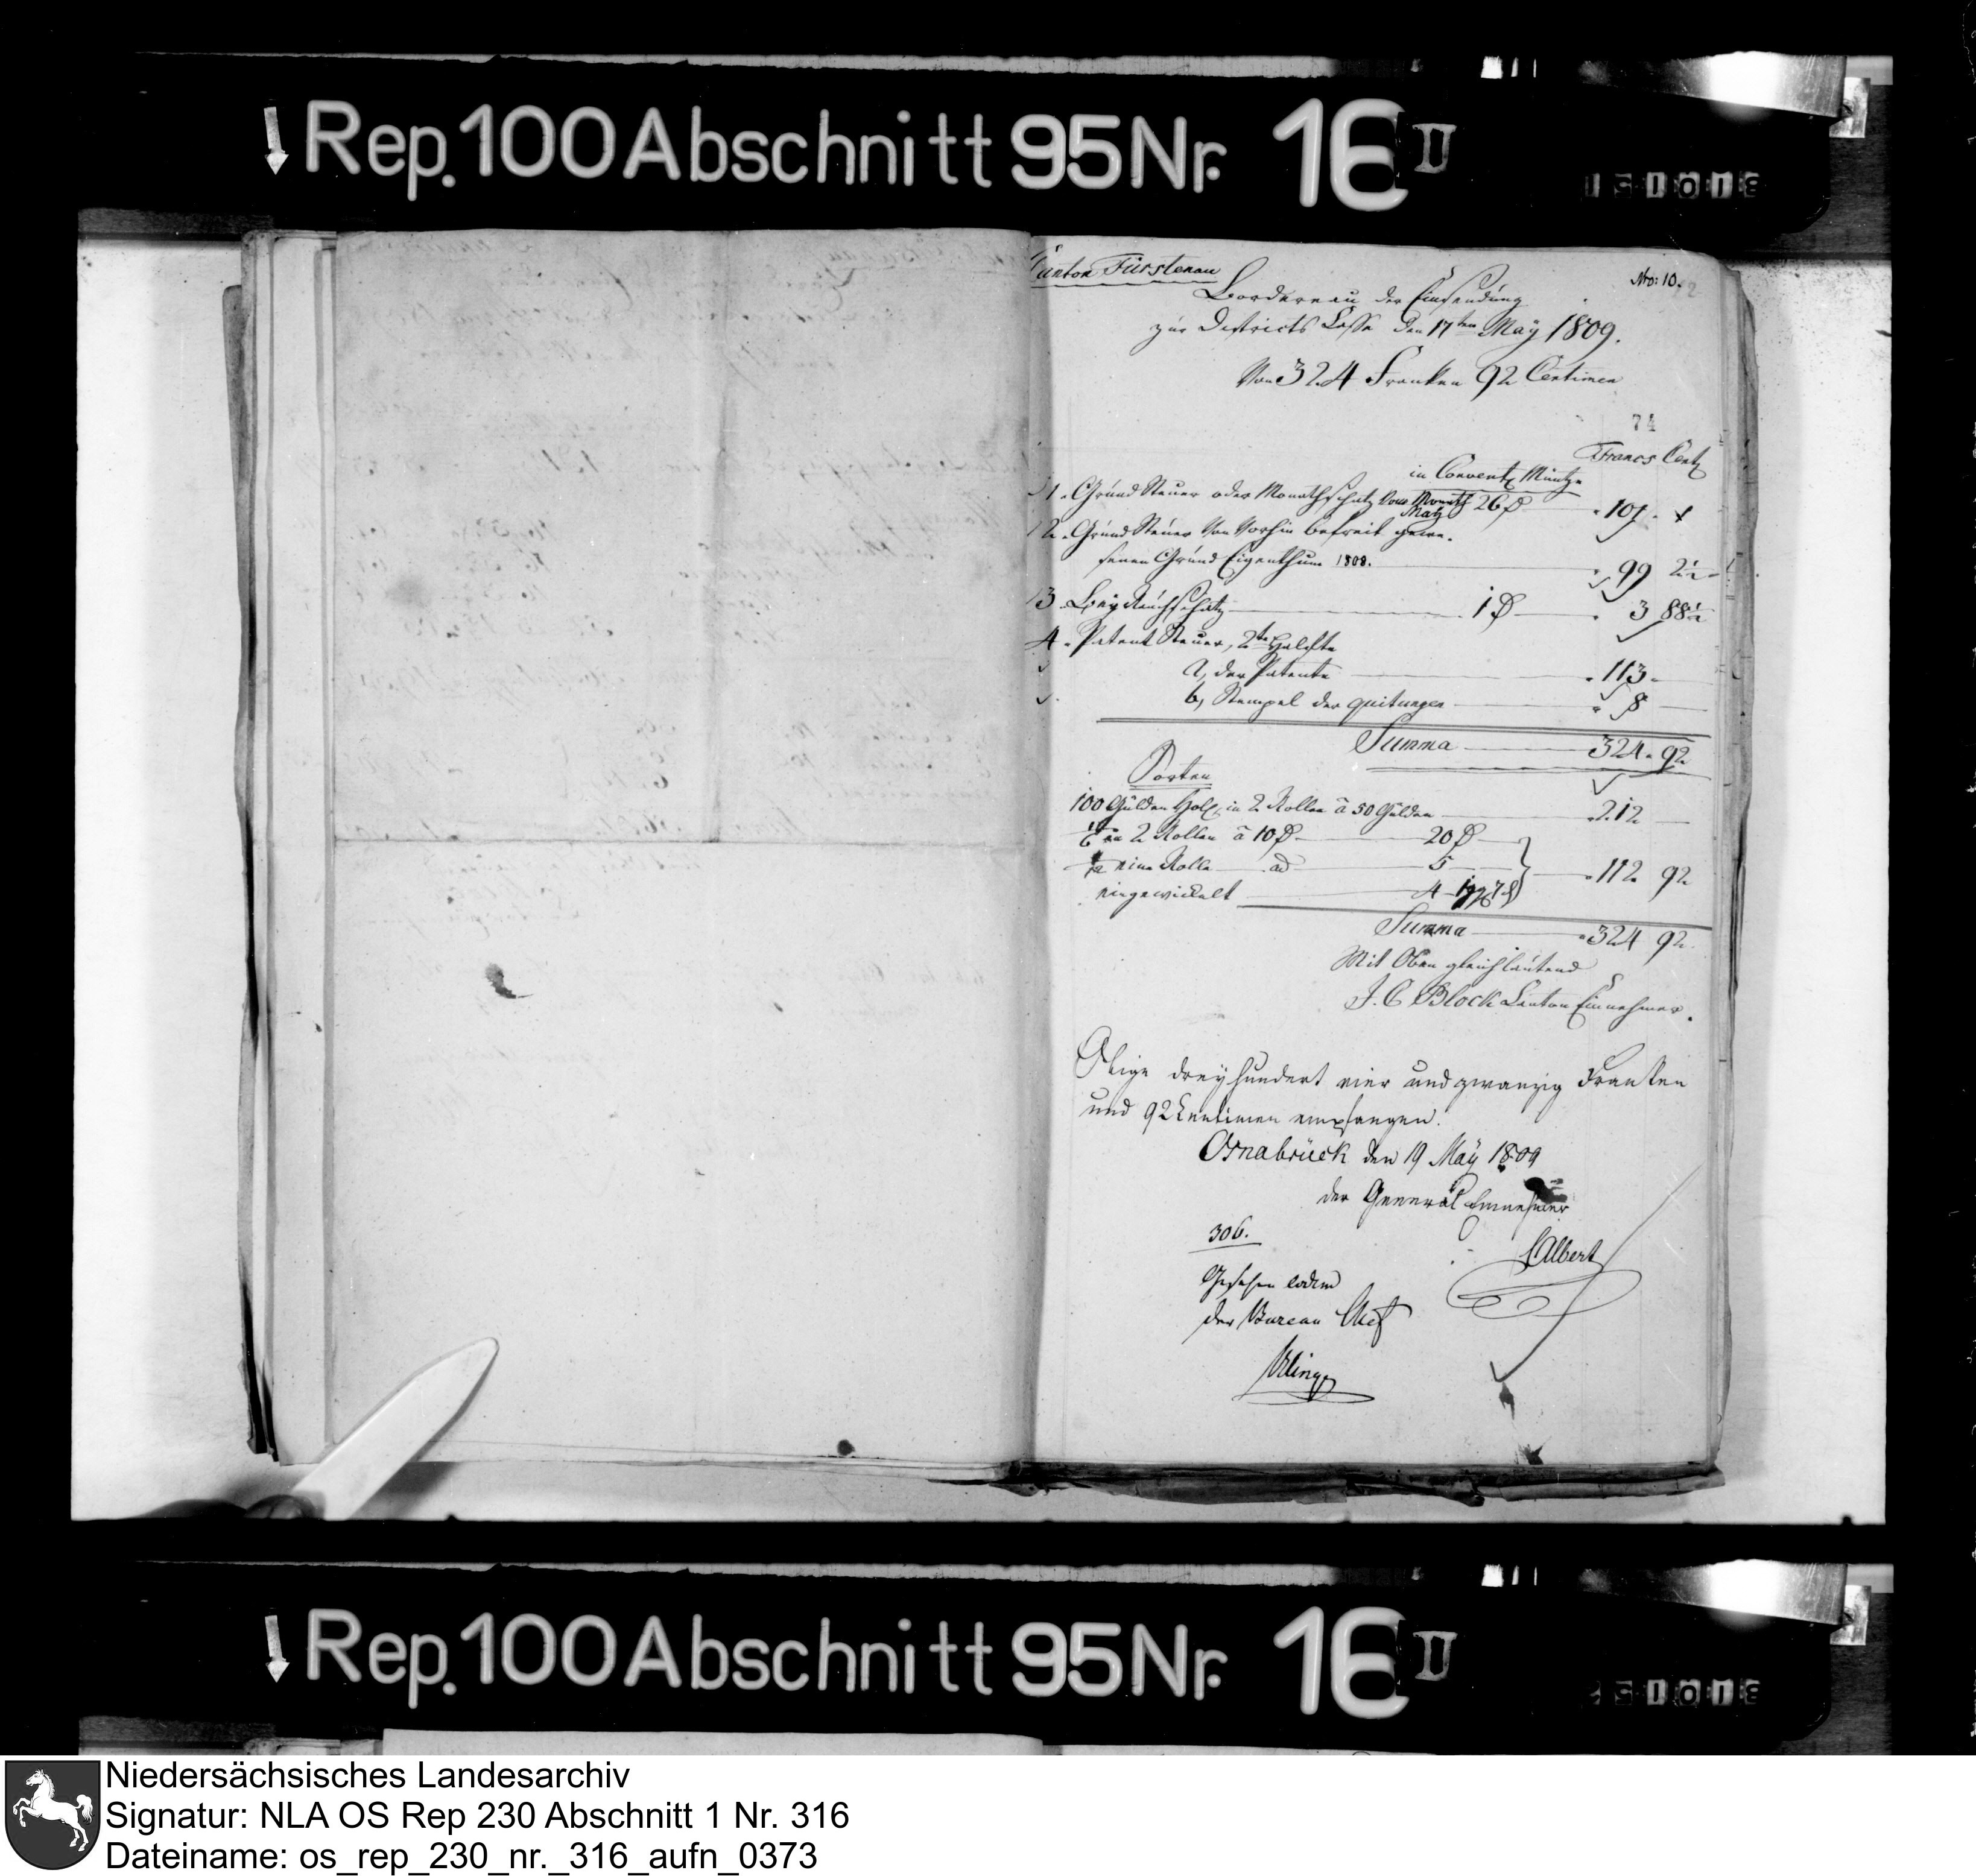 Rep. 100 Abschnitt 95 Nr. 16 II
Canton Fürstenau
Nro: 10.
Bordereau der Einsendung
zur Districts Casse den 17ten May 1809.
Von 324 Franken 92 Centimen
74
Francs Cent
in Convent Müntze
1. Grund Steuer oder Monathschatz vom Monath May 26 101.
2. Grund Steuer von vorhin befreit gewe-
senen Grund Eigenthum 1808. 99 2½
3. Rauchschatz 1 3 88½
4. Patent Steuer, 2te Hälfte
a, der Patente 113.
b, Stempel der quitungen 8
Summa 324. 92
Sorten
100 Gulden Holl. in 2 Rollen à 50 Gulden 212
in 2 Rollen à 10 20
eine Rolle ad 5 112 92
eingewickelt 4
Summa 324 92.
Mit Oben gleichlautend
J. C Block Canton Einnehmer.
Obige dreyhundert vier und zwanzig Franken
und 92 Centimen empfangen.
Osnabrück den 19 May 1809
der General Einnehmer
306.
Albert
Gesehen eodem
der Bureau Chef
Rep. 100 Abschnitt 95 Nr. 16 II
Niedersächsisches Landesarchiv
Signatur: NLA OS Rep 230 Abschnitt 1 Nr. 316
Dateiname: os_rep_230_nr._316_aufn_0373